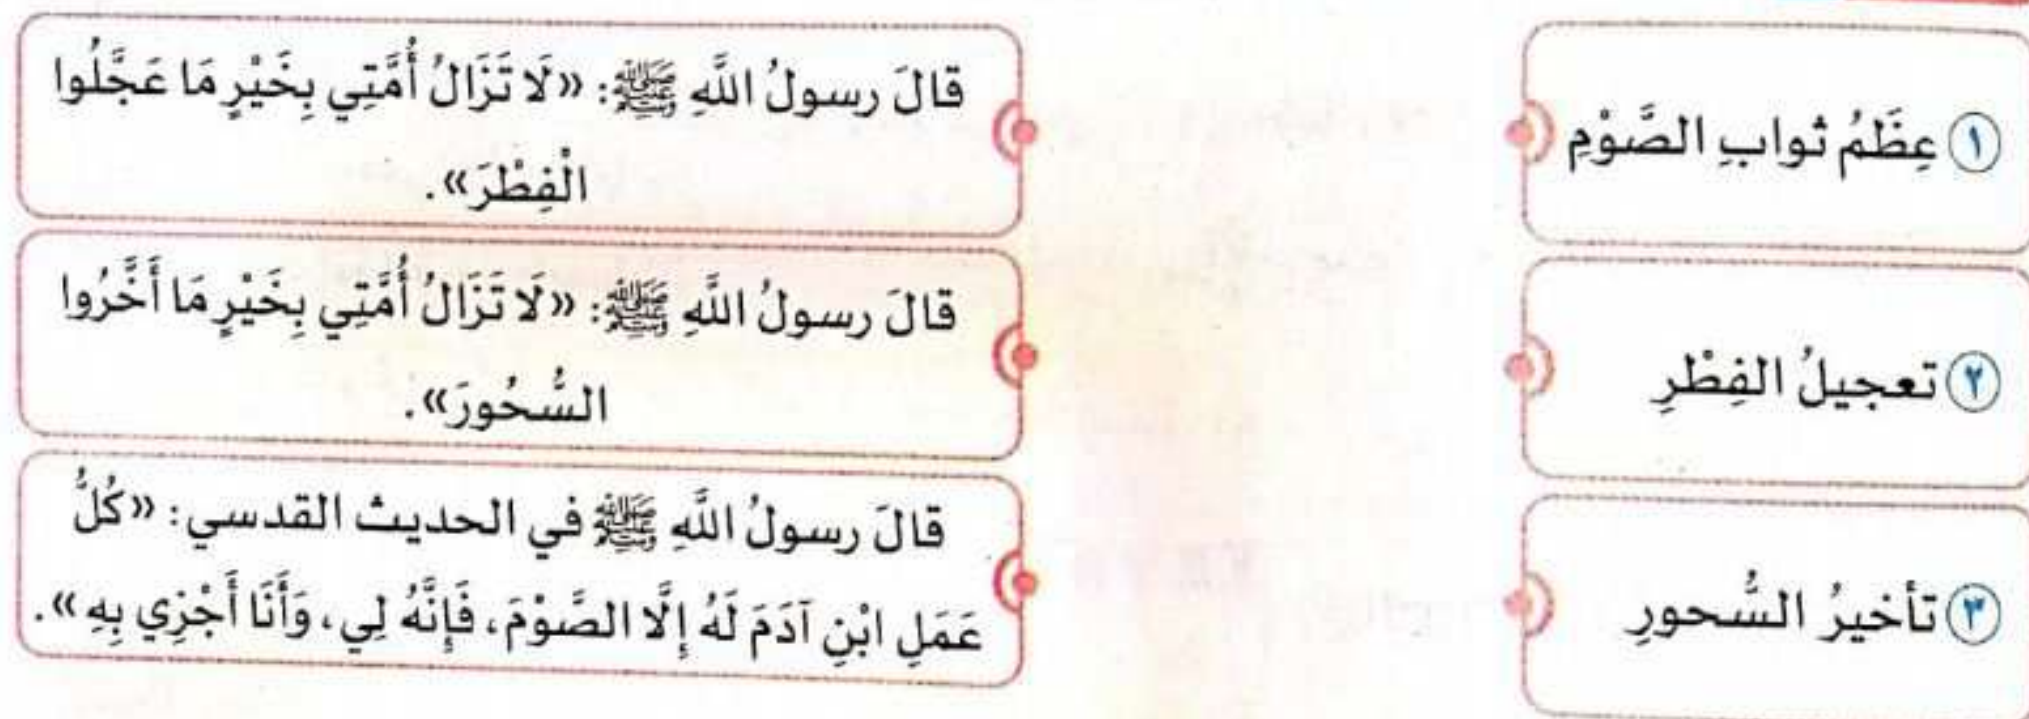 ١ عِظَمُ ثوابِ الصَّوْمِ
٢ تعجيلُ الفِطْرِ
٣ تأخيرُ السُّحورِ
قالَ رسولُ اللَّهِ ﷺ: «لَا تَزَالُ أُمَّتِي بِخَيْرٍ مَا عَجَّلُوا
الْفِطْرَ».
قالَ رسولُ اللَّهِ ﷺ: «لَا تَزَالُ أُمَّتِي بِخَيْرٍ مَا أَخَّرُوا
السُّحُورَ».
قالَ رسولُ اللَّهِ ﷺ في الحديث القدسي: «كُلُّ
عَمَلِ ابْنِ آدَمَ لَهُ إِلَّا الصَّوْمَ، فَإِنَّهُ لِي، وَأَنَا أَجْزِي بِهِ».